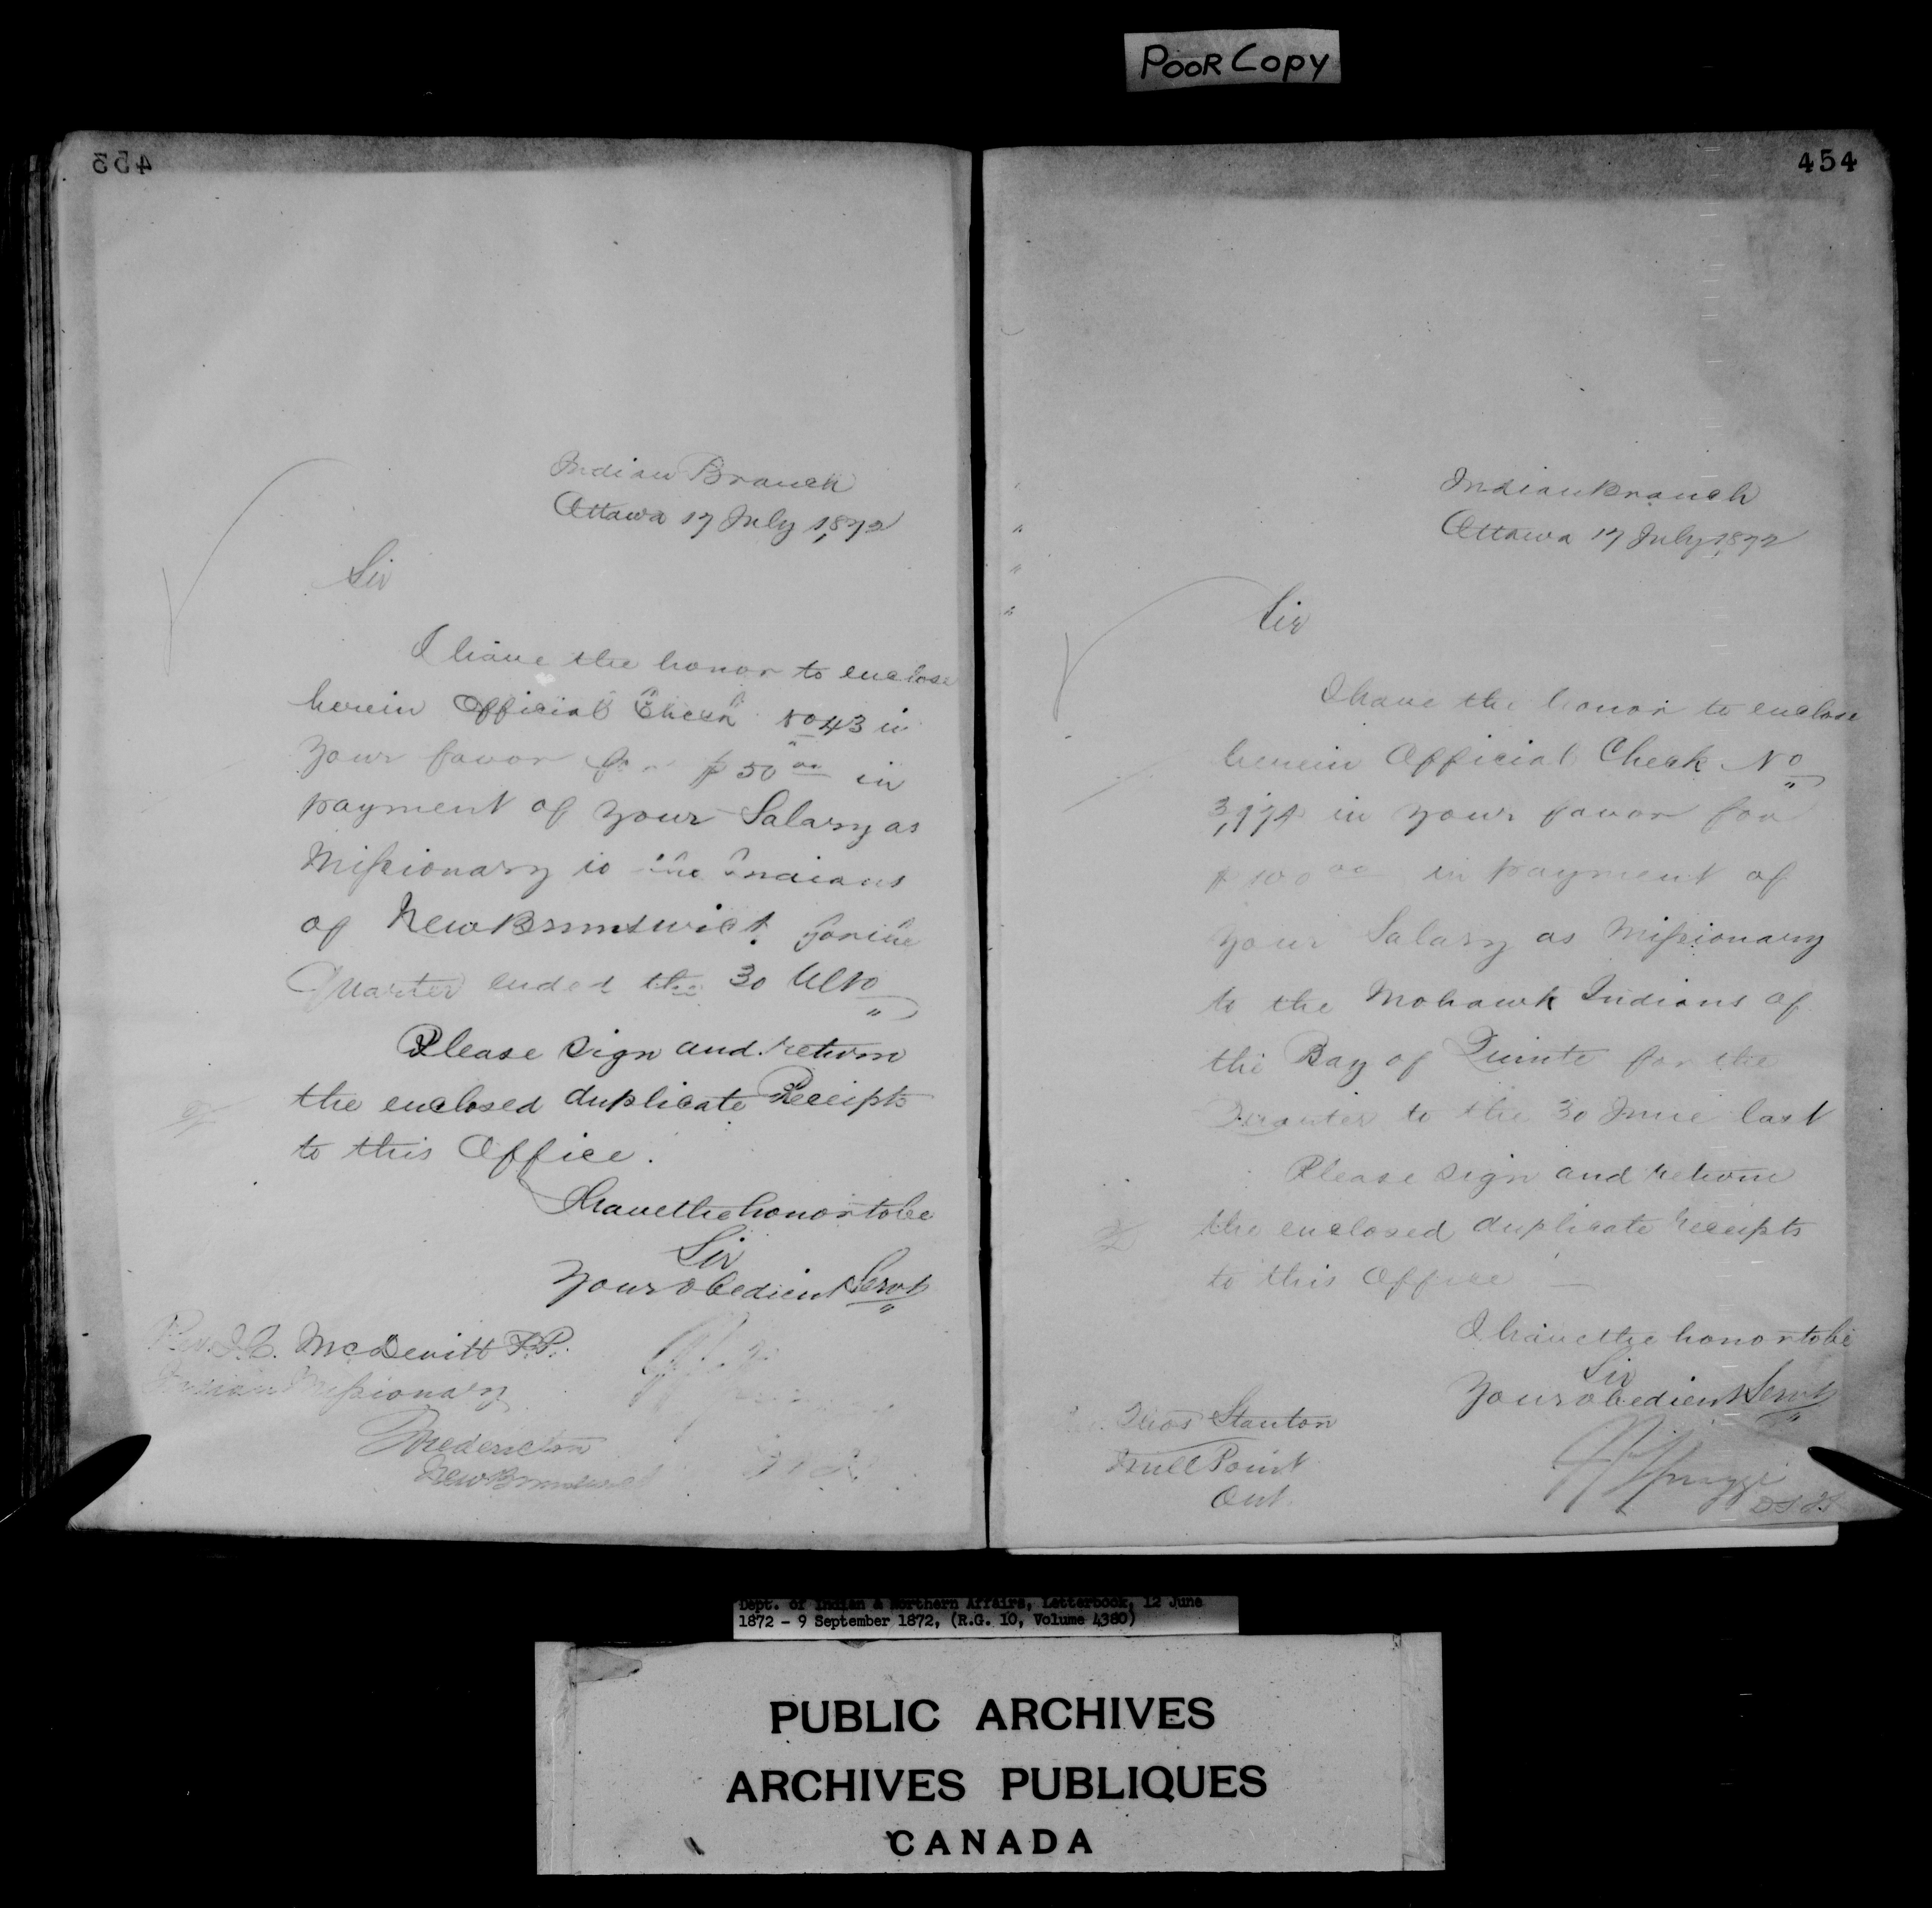 POOR Copy
453
Indian Branch
Ottawa 17 July 1,872
Sir
I have the honor to enclose
herein Official Check No 43 in
your favor for $50 00 in
payment of your Salary as
Missionary to the Indians
of New Brunswick for the
Quarter ended the 30 Ulto
Please sign and return
the enclosed duplicate Receipts
to this Office.
I have the honor to be
Sir
Your obedient Servt
Rev. J.C. McDevitt P.P.
Indian Missionary
Fredericton
New Brunswick
454
Indian Branch
Ottawa 17 July 1,872
Sir
I have the honor to enclose
herein Official Check No
3,174 in your favor for
$100 00 in payment of
your Salary as Missionary
to the Mohawk Indians of
the Bay of Quinte for the
Quarter to the 30 June last
Please sign and return
the enclosed duplicate receipts
to this Office
I have the honor to be
Sir
Your obedient Servt
Thos Stanton
Point
Ont.
Spragge
D.S.I.A
Dept. of Indian & Northern Affairs, Letterbook, 12 June
1872 - 9 September 1872, (R.G. 10, Volume 4380)
PUBLIC ARCHIVES
ARCHIVES PUBLIQUES
CANADA